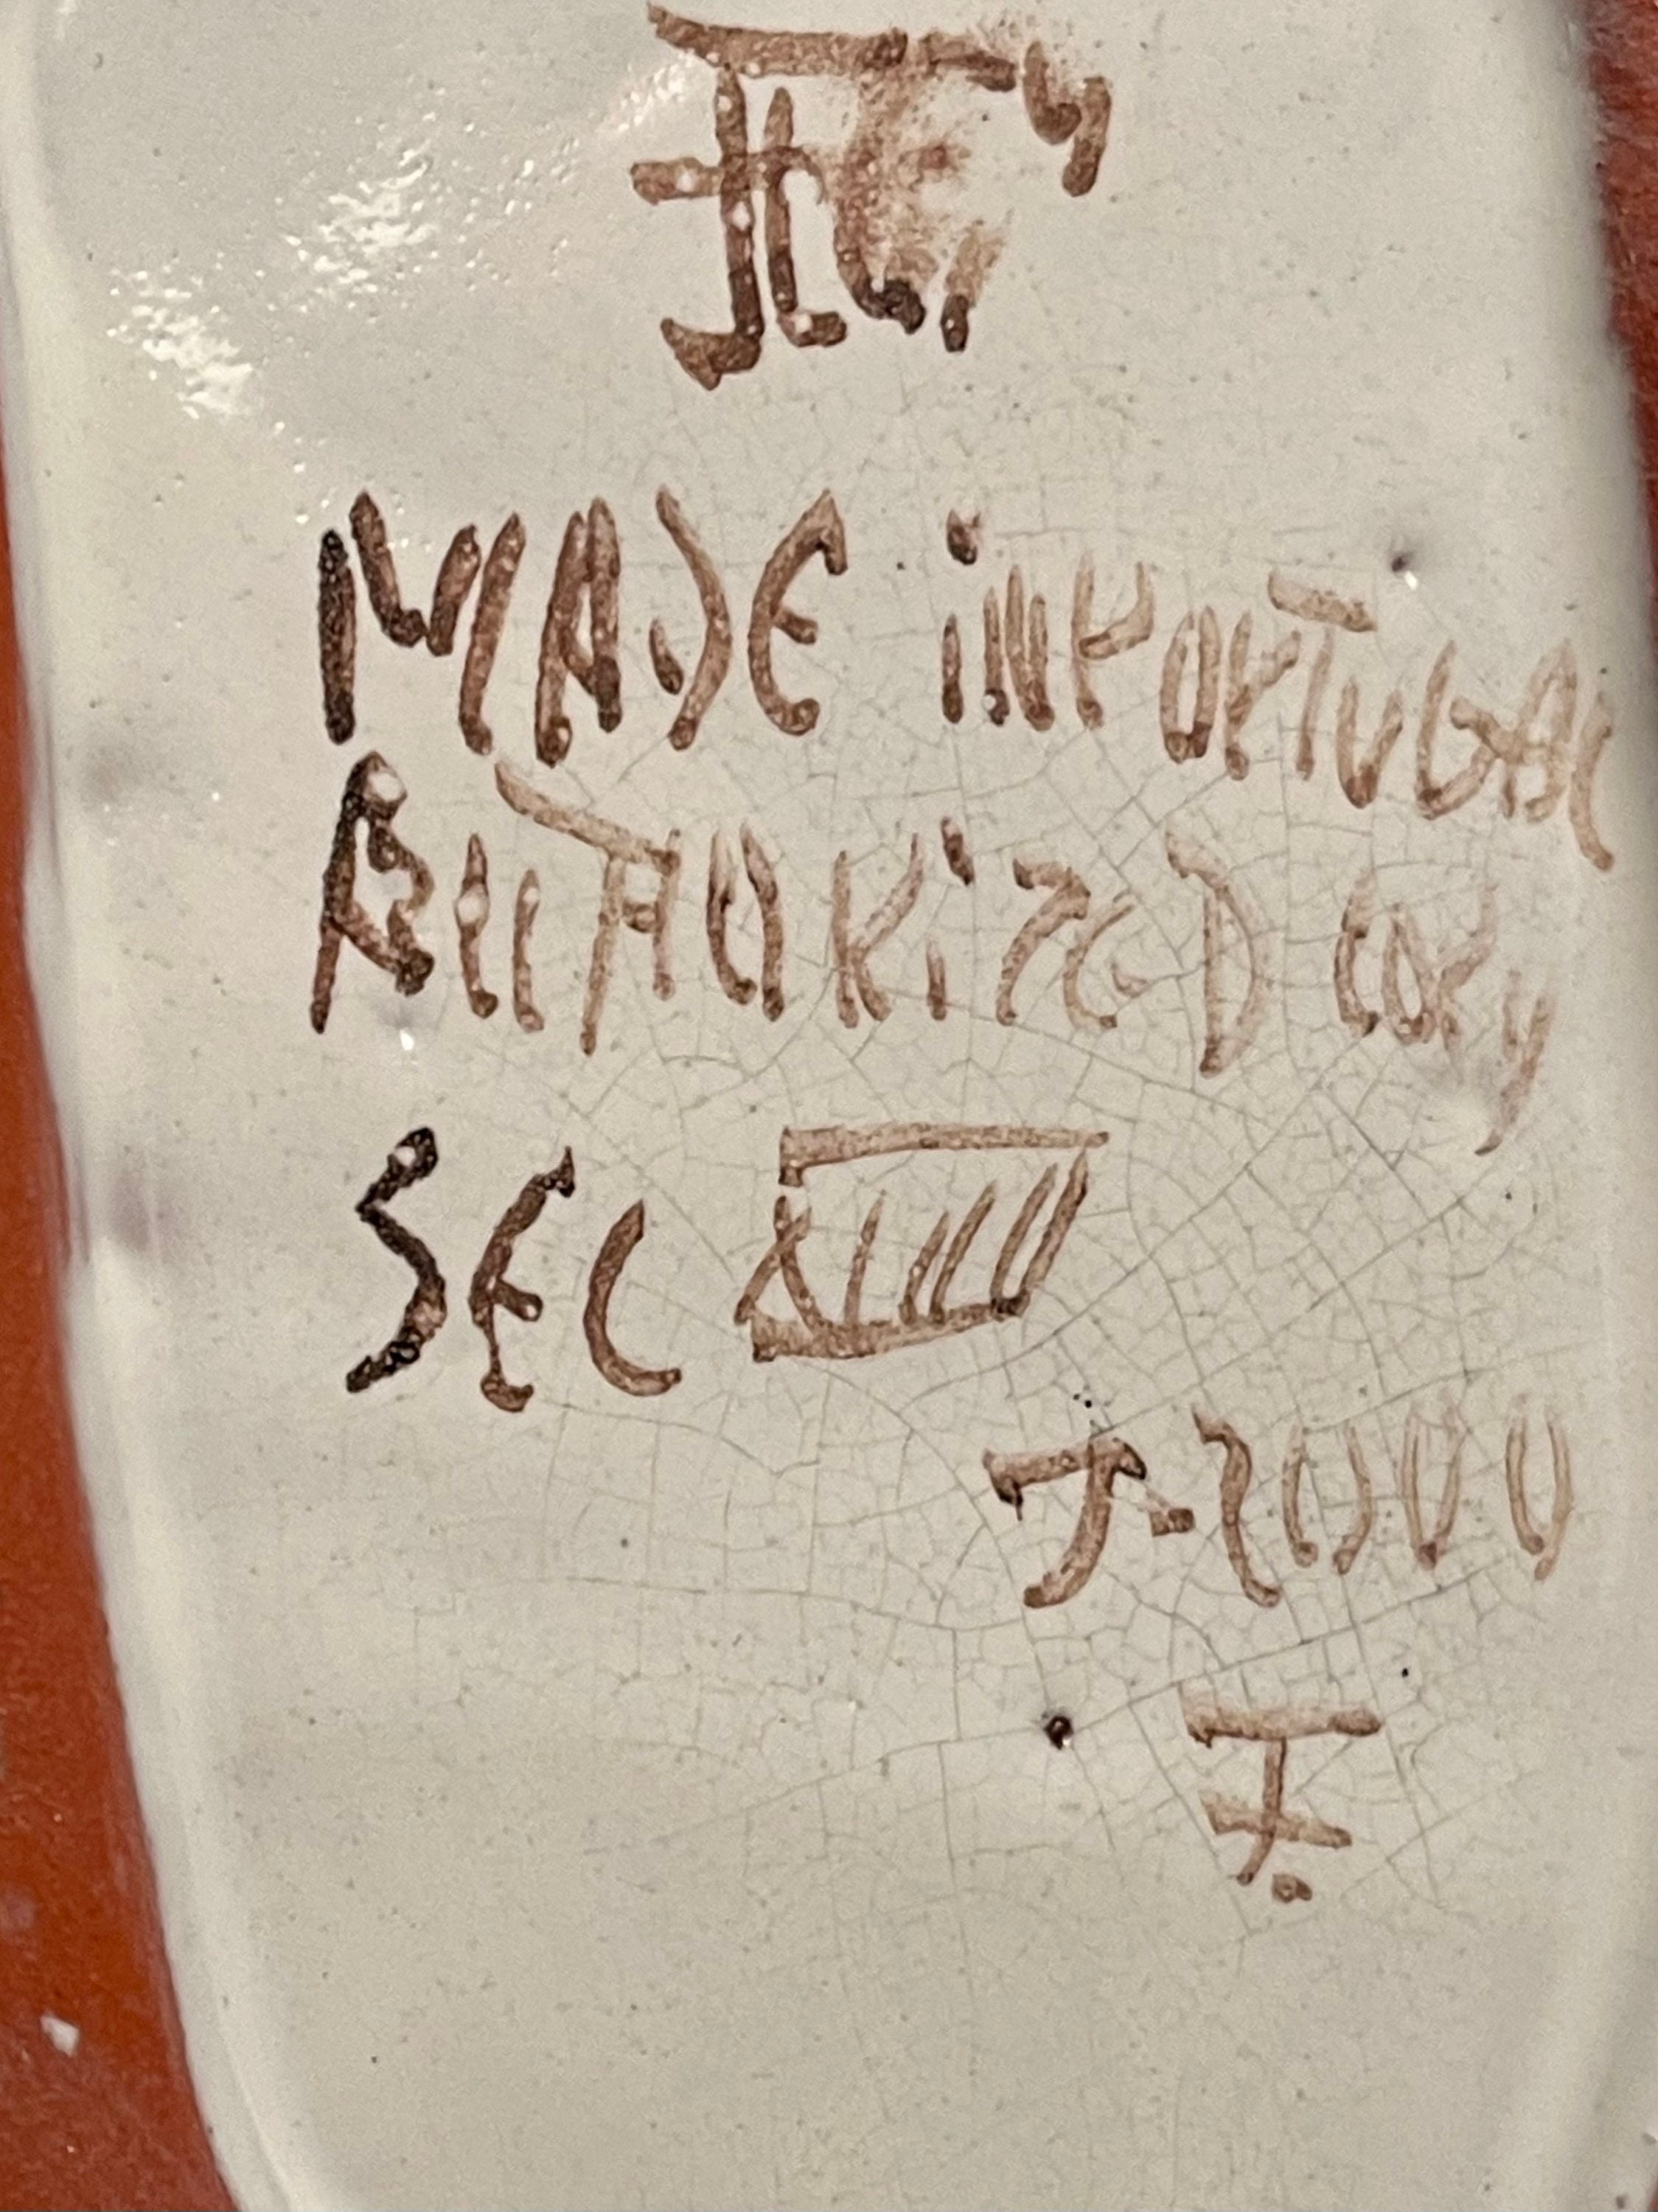 MADE iN PORTUGAL
AUTHORiZED COPY
SEC XVIII
J-2000